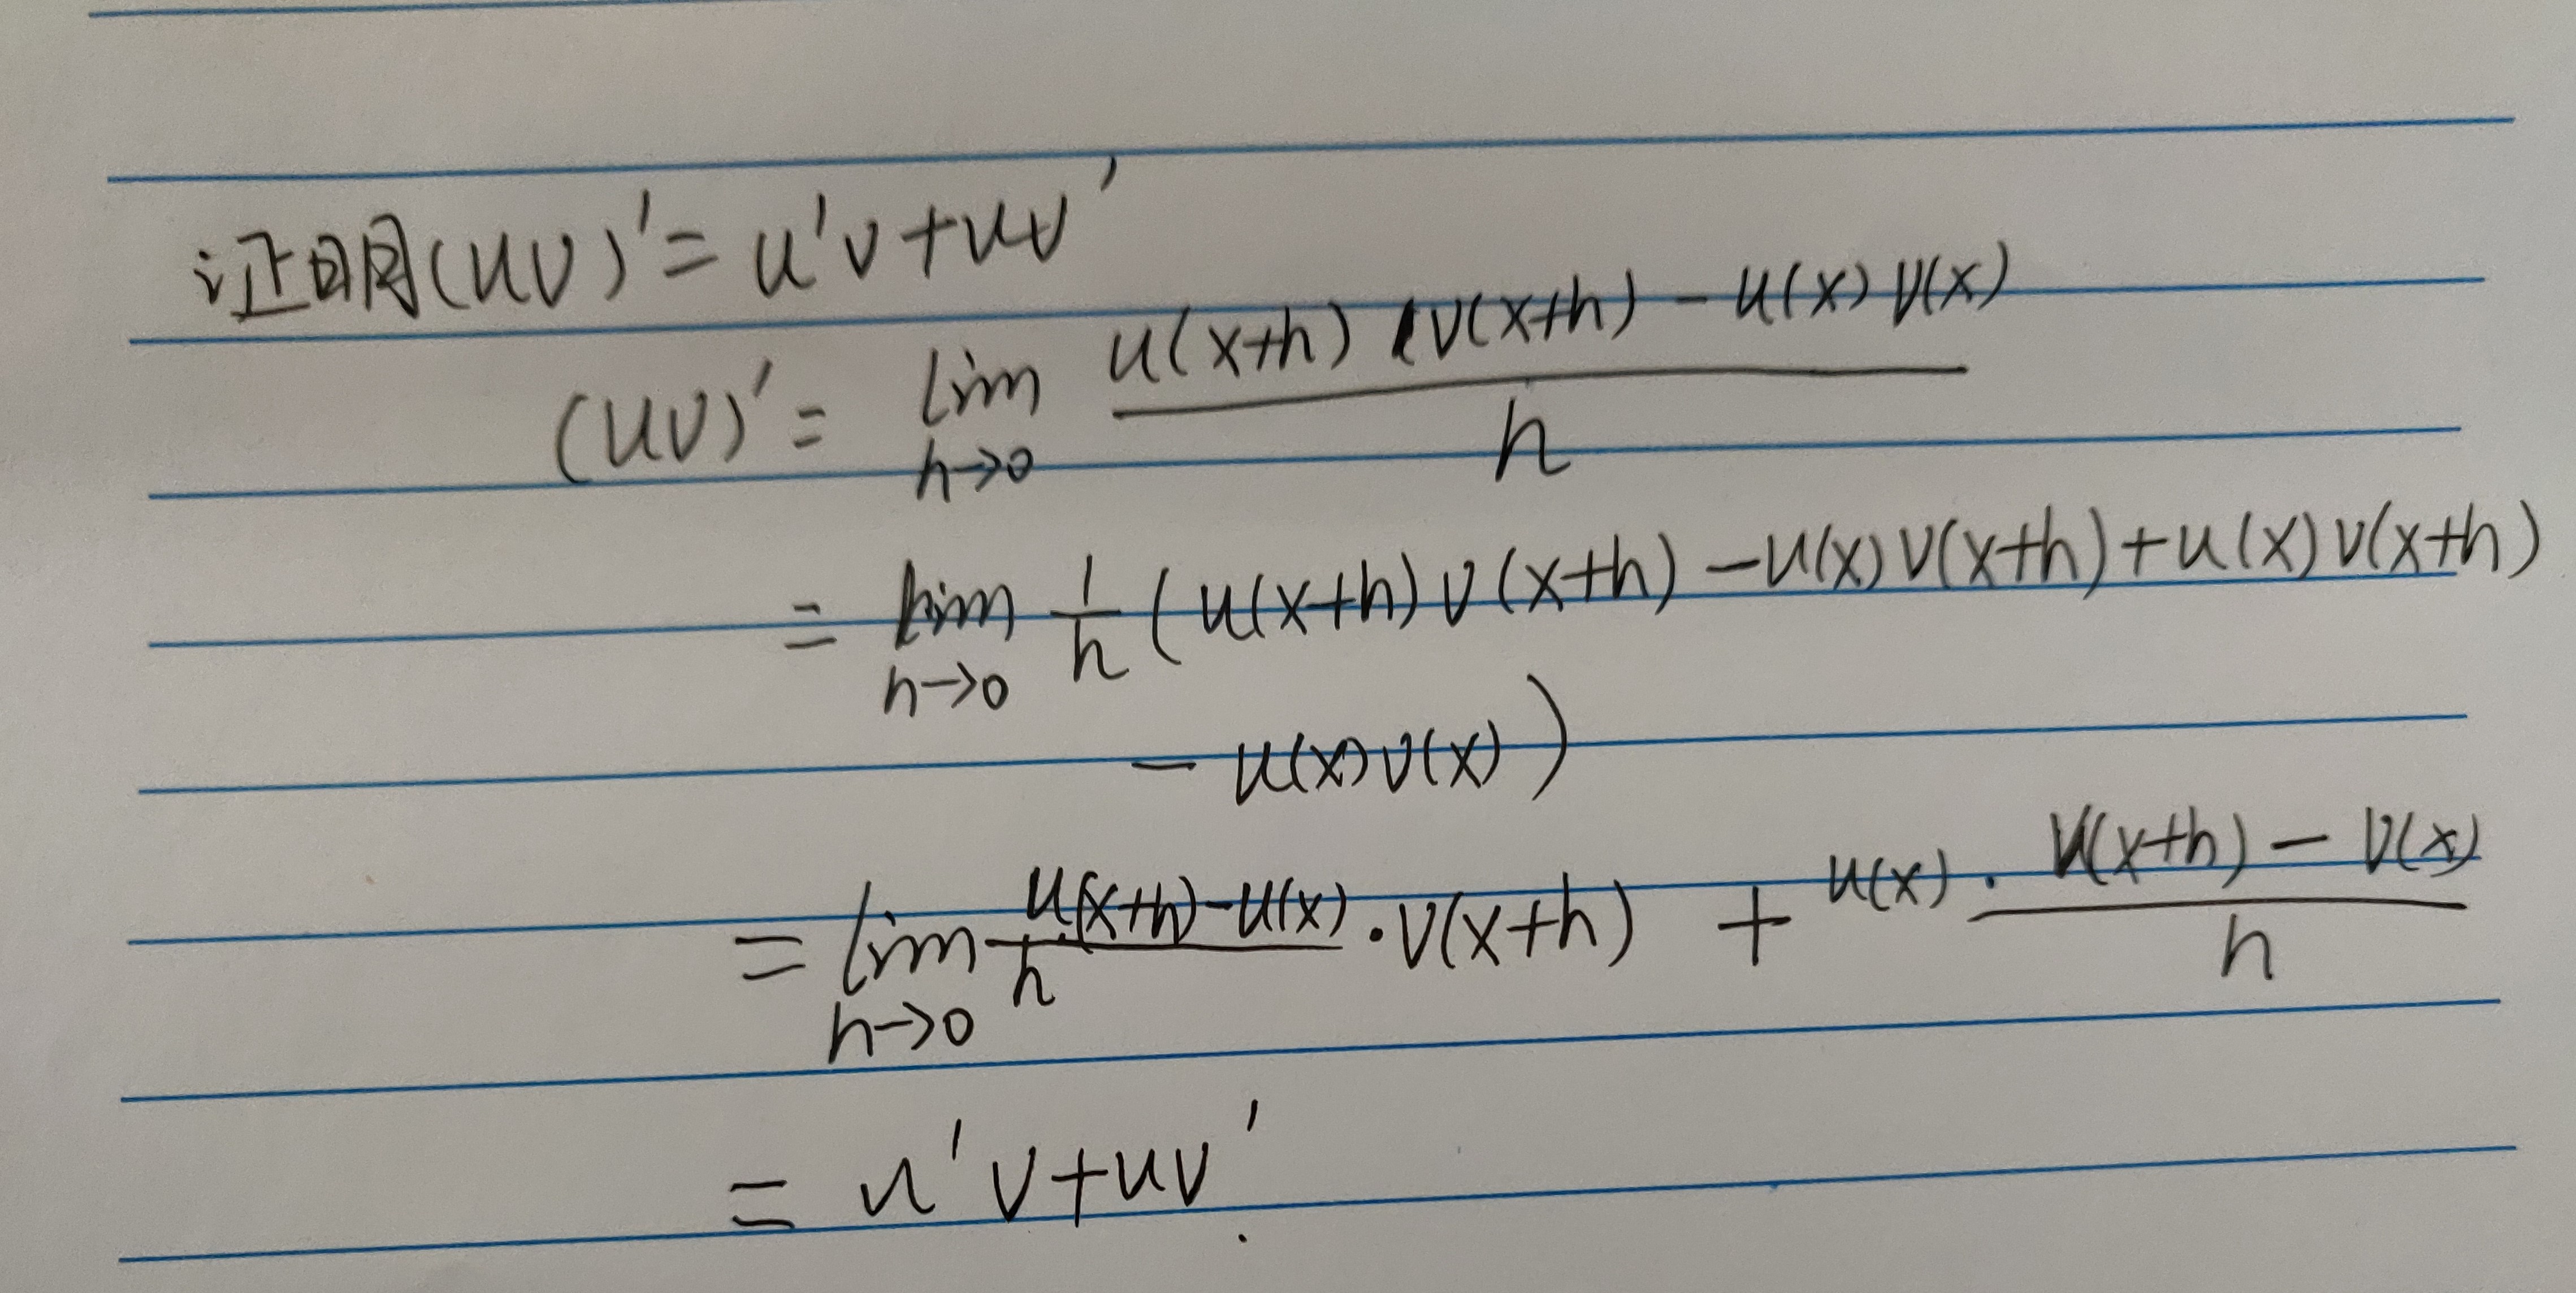 证明(uv)' = u'v+uv'
(uv)' = lim h→0 u(x+h) v(x+h) - u(x) v(x) / h
= lim h→0 1/h ( u(x+h) v(x+h) - u(x) v(x+h) + u(x) v(x+h)
- u(x) v(x) )
= lim h→0 u(x+h)-u(x) / h · v(x+h) + u(x) · v(x+h) - v(x) / h
= u'v+uv'.